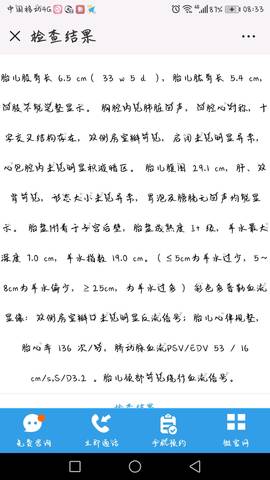 中国移动4G 87% 08:33
检查结果
胎儿股骨长 6.5 cm( 33 w 5 d ), 胎儿肱骨长 5.4 cm,
四肢不能完整显示。 胸腔内见肺脏回声, 四腔心对称, 十
字交叉结构存在, 双侧房室瓣可见, 启闭未见明显异常,
心包腔内未见明显积液暗区。 胎儿腹围 29.1 cm, 肝、双
肾可见, 形态大小未见异常, 胃泡及膀胱无回声均能显
示。 胎盘附着于子宫后壁, 胎盘成熟度 I+ 级, 羊水最大
深度 7.0 cm, 羊水指数 19.0 cm。(≤5cm为羊水过少, 5~
8cm为羊水偏少, ≥25cm, 为羊水过多) 彩色多普勒血流
显像: 双侧房室瓣口未见明显反流信号; 胎儿心律规整,
胎心率 136 次/分, 脐动脉血流PSV/EDV 53 / 16
cm/s,S/D3.2 。胎儿颈部可见绕行血流信号。
检查结果
免费咨询 立即通话 手机预约 微官网